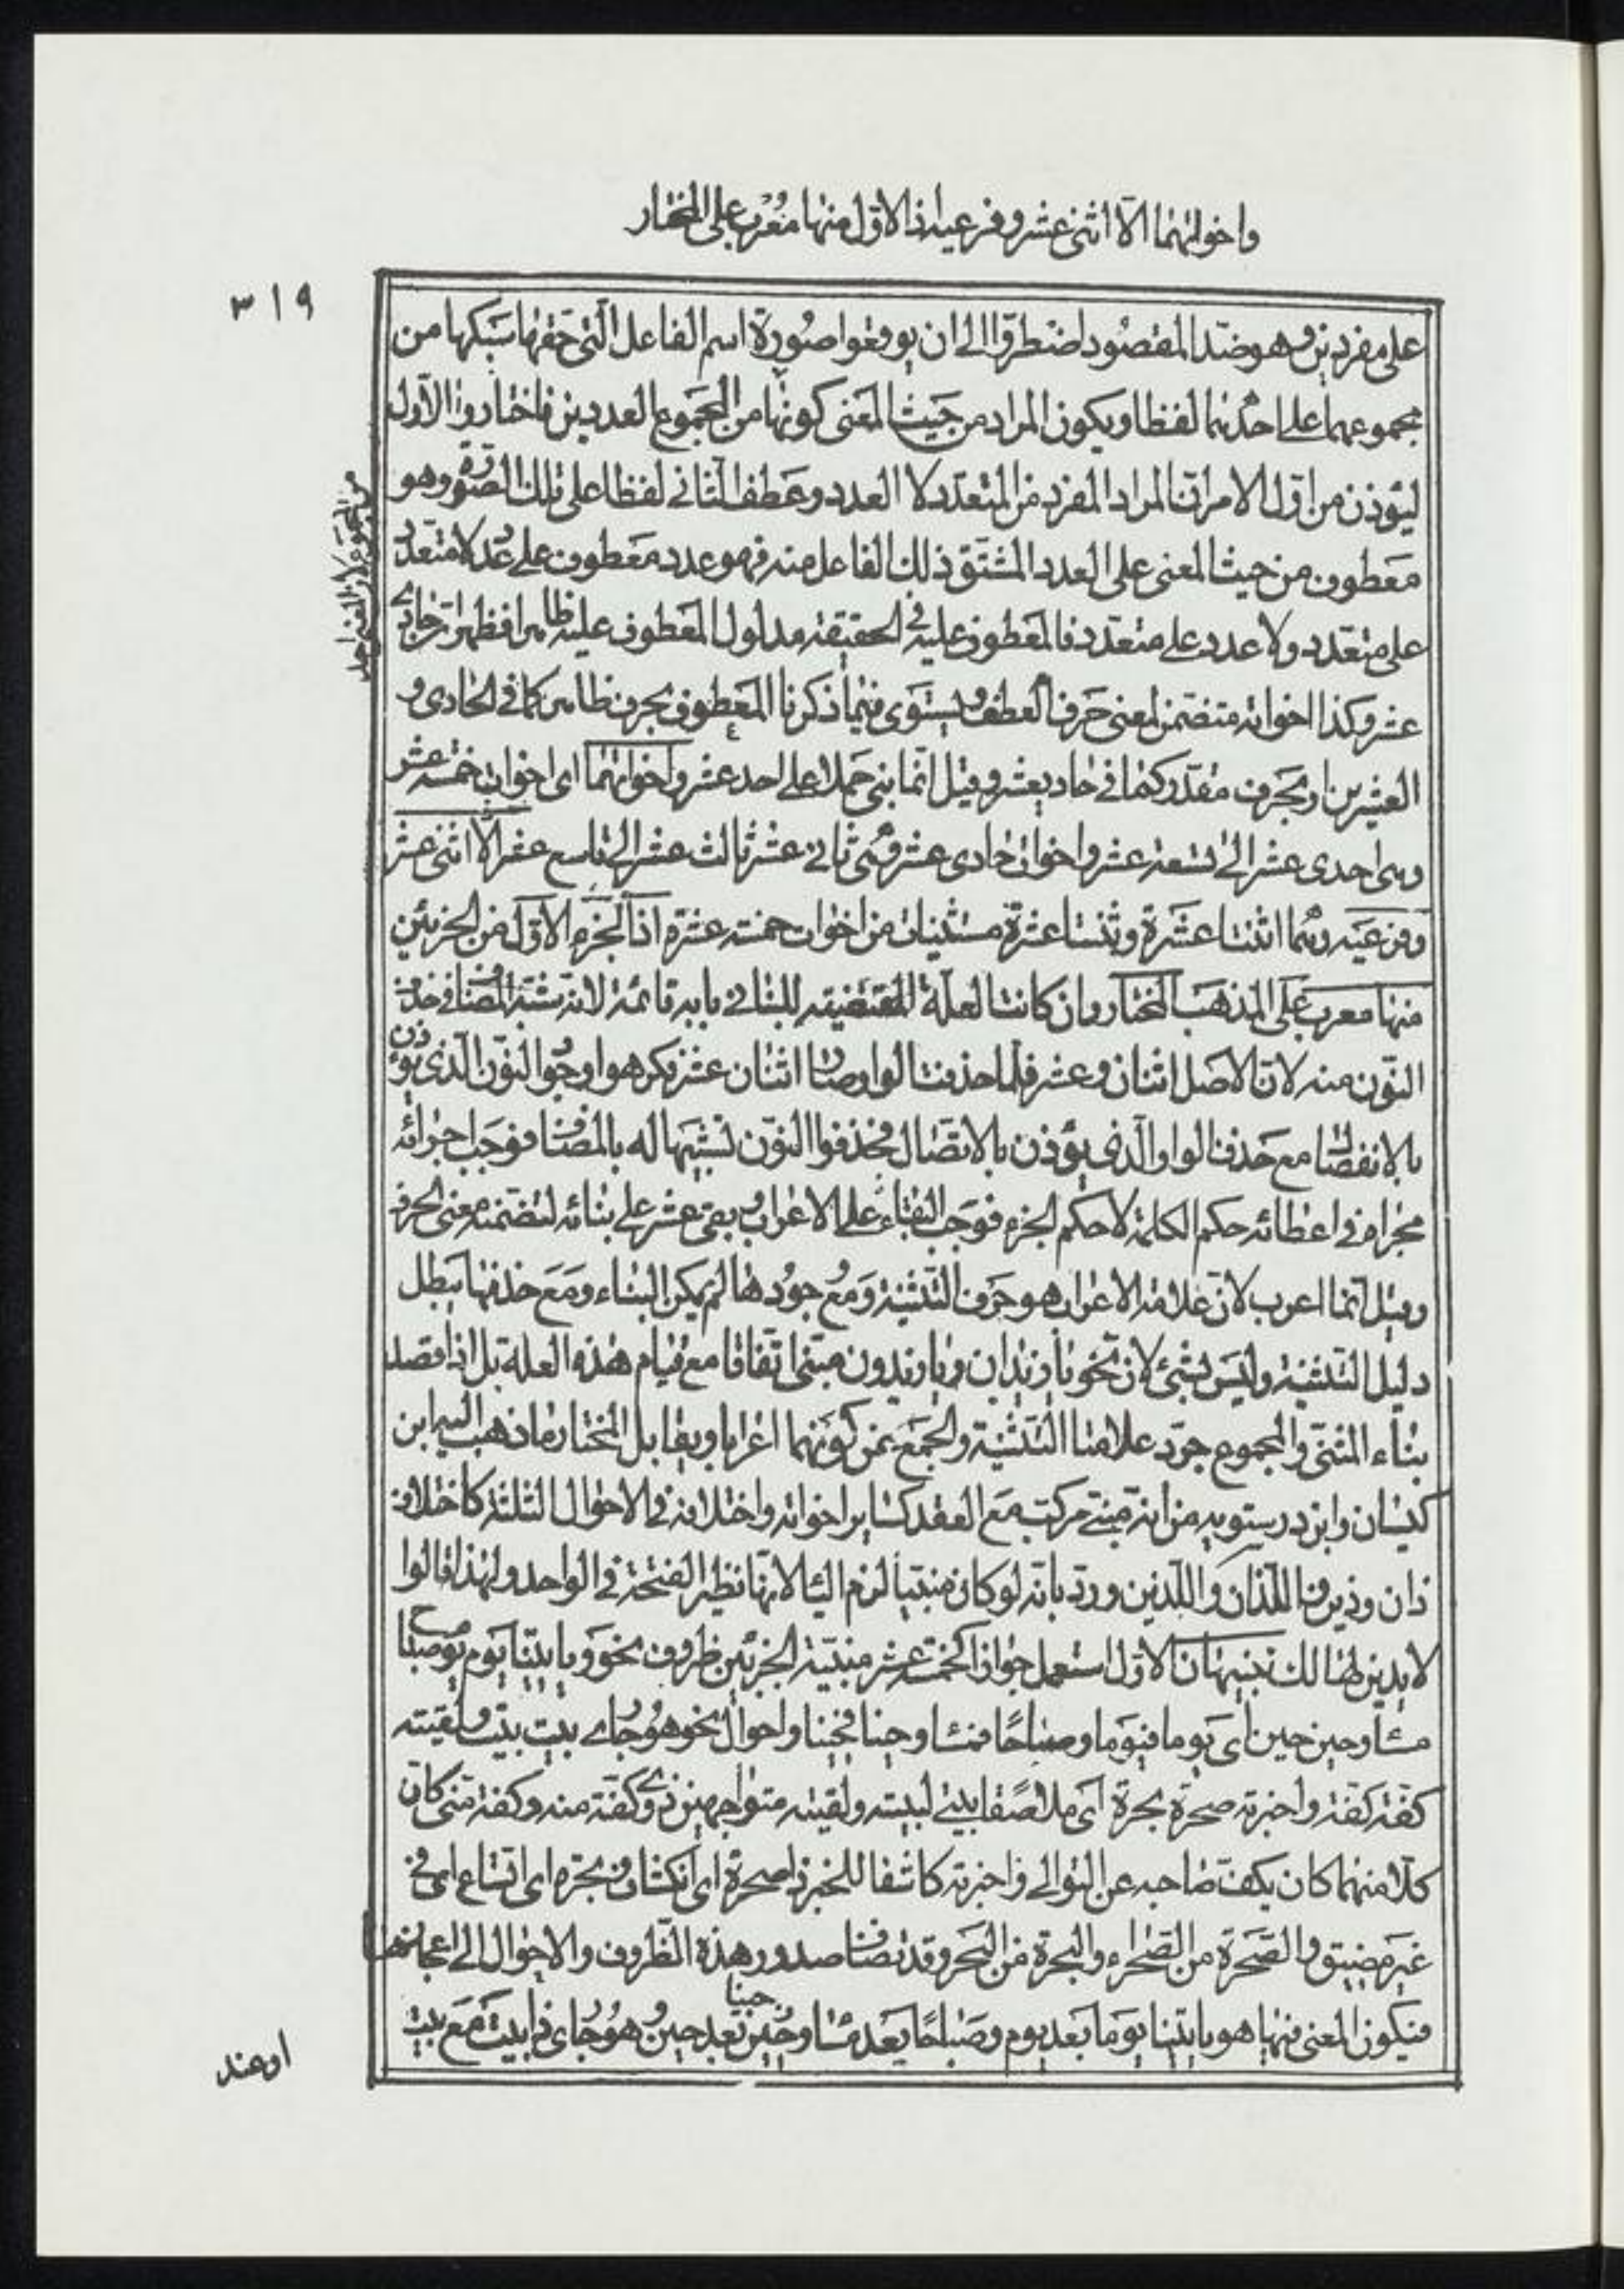 واخواتهما الّا اثنى عشر وفرعيه اذ الاوّل منها مُعْرب على المختار
٣١٩
على مفردين وهو ضدّ المقصُود اضطرّوا الى ان يوقعوا صُورة اسم الفاعل الّتى حقها سَبكها من
مجموعهما على احدهما لفظا ويكون المراد من حَيث المعنى كونها من المجموع العددين فاختاروا الاوّل
ليؤذن من اوّل الامر انّ المراد المفرد من المتعدّد لا العدد وعَطف الثّانى لفظا على تلك الصّورة وهو
معَطوف من حيث المعنى على العدد المشتق ذلك الفاعل منه فهو عدد معَطوف على عدد لا متعدد
على متعدد ولا عدد على متعدد فالمعَطوف عليه فى الحقيقة مدلول المعَطوف عليه ظاهرا فظهر ان حادى
عشر وكذا اخواته متضمن لمعنى حَرف العطف ويستوى فيما ذكرنا المعَطوف بحرف ظاهر كما فى الحادى و
العشرين او بحَرف مقدّر كما فى حادى عشر وقيل انّما بنى حَملا على احد عشر واخواتهما اى اخوات خمسة عشر
وهى احدى عشر الى تسعة عشر واخوات حادى عشر وهى ثانى عشر ثالث عشر الى تاسع عشر الّا اثنى عشر
وفرعَيه وهما اثنتا عشَرة وثنتا عشرة مستثنيات من اخوات خمسة عشرة اذ الجُزء الاوّل من الجزئين
منها معرب على المذهَب المختار وان كانت العلّة المقتضية للبناء فى بابه قائمة لانه شبّه المضاف فى حذف
النّون منه لانّ الاصَل اثنان وعشر فلمّا حذفت الواو وصار اثنان عشر فكرهوا وجُود النّون الّذى يؤذن
بالانفصَال مع حَذف الواو الّذى يؤذن بالاتّصَال فحذفوا النّون تشبيها له بالمضَاف فوجَب اجرائه
مجراه فى اعطائه حكم الكلمة لا حكم الجزء فوجَب البقاء على الاعراب وبقى عشر على بنائه لتضمّنه معنى الحرف
وقيل انّما اعرب لانّ علامة الاعراب هو حَرف التّثنية ومَع وجُودها لم يمكن البناء ومَع حذفها يبطل
دليل التّثنية وليَس بشئ لان نحو يا زيدان ويا زيدون مبنى اتّفاقا مع قيام هذه العلة بل اذا قصد
بناء المثنّى والمجموع جرّد علامتا التّثنية والجَمَع عن كونهما اعرابا ويقابل المختار ما ذهب اليه ابن
كيسان وابن درستويه من انه مبنى مركّب مَع العقد كساير اخواته واختلافه فى الاحوال الثلثة كاختلاف
ذان وذين واللّذان واللّذين وردّ بانّه لو كان مبنيّا لزم الياء لانّها نظير الفتحة فى الواحد ولهذا قالوا
لا يدين لها لك تنبيهان الاوّل استعمل جوازا كخمسة عشر مبنيّة الجزئين ظروف نحو ويا بيتنا يَوم يوم صباح
مسَاء وحين حين اى يَوما فيَوما وصبَاحًا فمسَا وحينا فحينا واحوال نحو هُو جارى بيت بيت ولقيته
كفّة كفّة واخبرته صحرة بحرة اى ملاصقا بيتى لبيته ولقيته متواجهين ذوى كفّة منه وكفّة منّى كان
كلّا منهما كان يكفّ صاحبه عن التوالى واخبرته كاشفا للخبر ذا صحرة اى انكشاف وبحرة اى اتساع اى فى
غير مضيق والصّحَرة من الصّحَراء والبحرة من البَحر وقد تضاف صدور هذه الظّروف والاحوال الى اعجازها
فيكون المعنى فيها هو ياتينا يَوما بَعد يوم وصَباحًا بعَد مسَا وحينا بَعد حين وهُو جارى ذا بيت مَع بيت
او عند